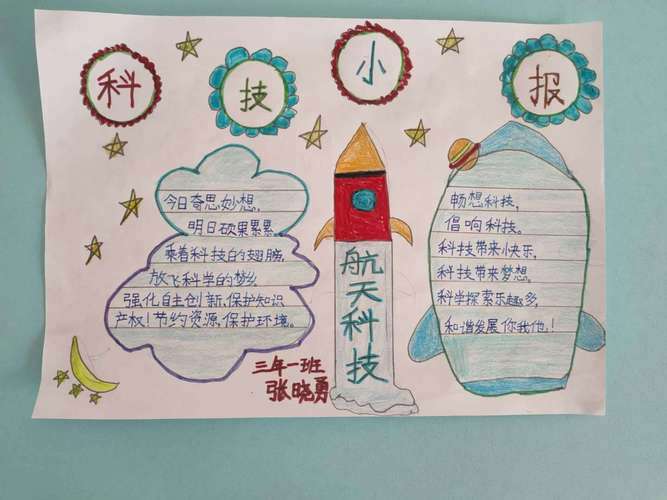 科技小报
今日奇思妙想,
明日硕果累累。
乘着科技的翅膀,
放飞科学的梦幺
强化自主创新,保护知识
产权!节约资源,保护环境。
航天科技
三年一班
张晓勇
畅想科技,
倡响科技。
科技带来快乐,
科技带来梦想。
科学探索乐趣多,
和谐发展你我他!